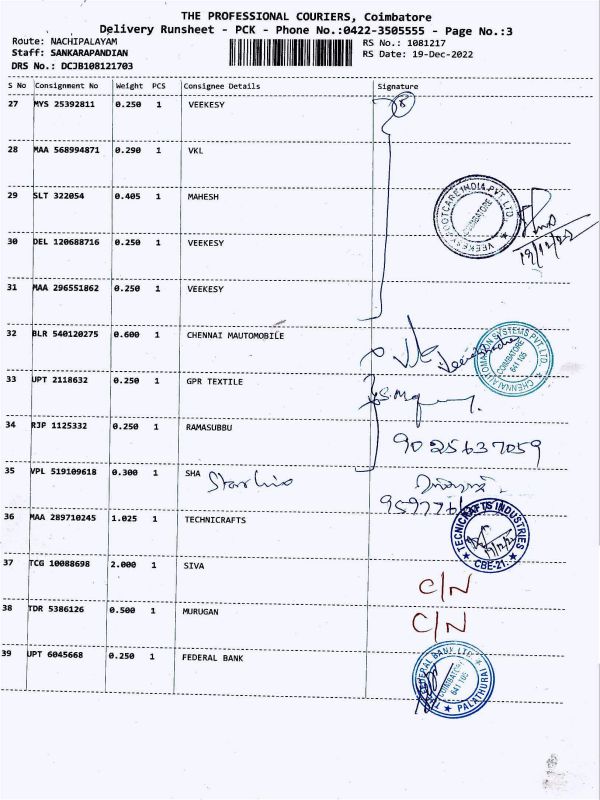 THE PROFESSIONAL COURIERS, Coimbatore
Delivery Runsheet - PCK - Phone No.:0422-3505555 - Page No.:3
Route: NACHIPALAYAM
RS No.: 1081217
Staff: SANKARAPANDIAN
RS Date: 19-Dec-2022
DRS No.: DCJB108121703
S No Consignment No Weight PCS Consignee Details Signature
27 MYS 25392811 0.250 1 VEEKESY 8
28 MAA 568994871 0.290 1 VKL
29 SLT 322054 0.405 1 MAHESH
VEEKESY FOOTCARE INDIA PVT LTD. COIMBATORE
19/12/22
30 DEL 120688716 0.250 1 VEEKESY
31 MAA 296551862 0.250 1 VEEKESY
32 BLR 540120275 0.600 1 CHENNAI MAUTOMOBILE
CHENNAI AUTOMATION SYSTEMS PVT.LTD. COIMBATORE 641 105
33 UPT 2118632 0.250 1 GPR TEXTILE
34 RJP 1125332 0.250 1 RAMASUBBU
9025637059
35 VPL 519109618 0.300 1 SHA
36 MAA 289710245 1.025 1 TECHNICRAFTS
TECNICRAFTS INDUSTRIES CBE-21
37 TCG 10088698 2.000 1 SIVA
C/N
38 TDR 5386126 0.500 1 MURUGAN
C/N
39 UPT 6045668 0.250 1 FEDERAL BANK
THE FEDERAL BANK LTD. COIMBATORE 641 105 PALATHURAI